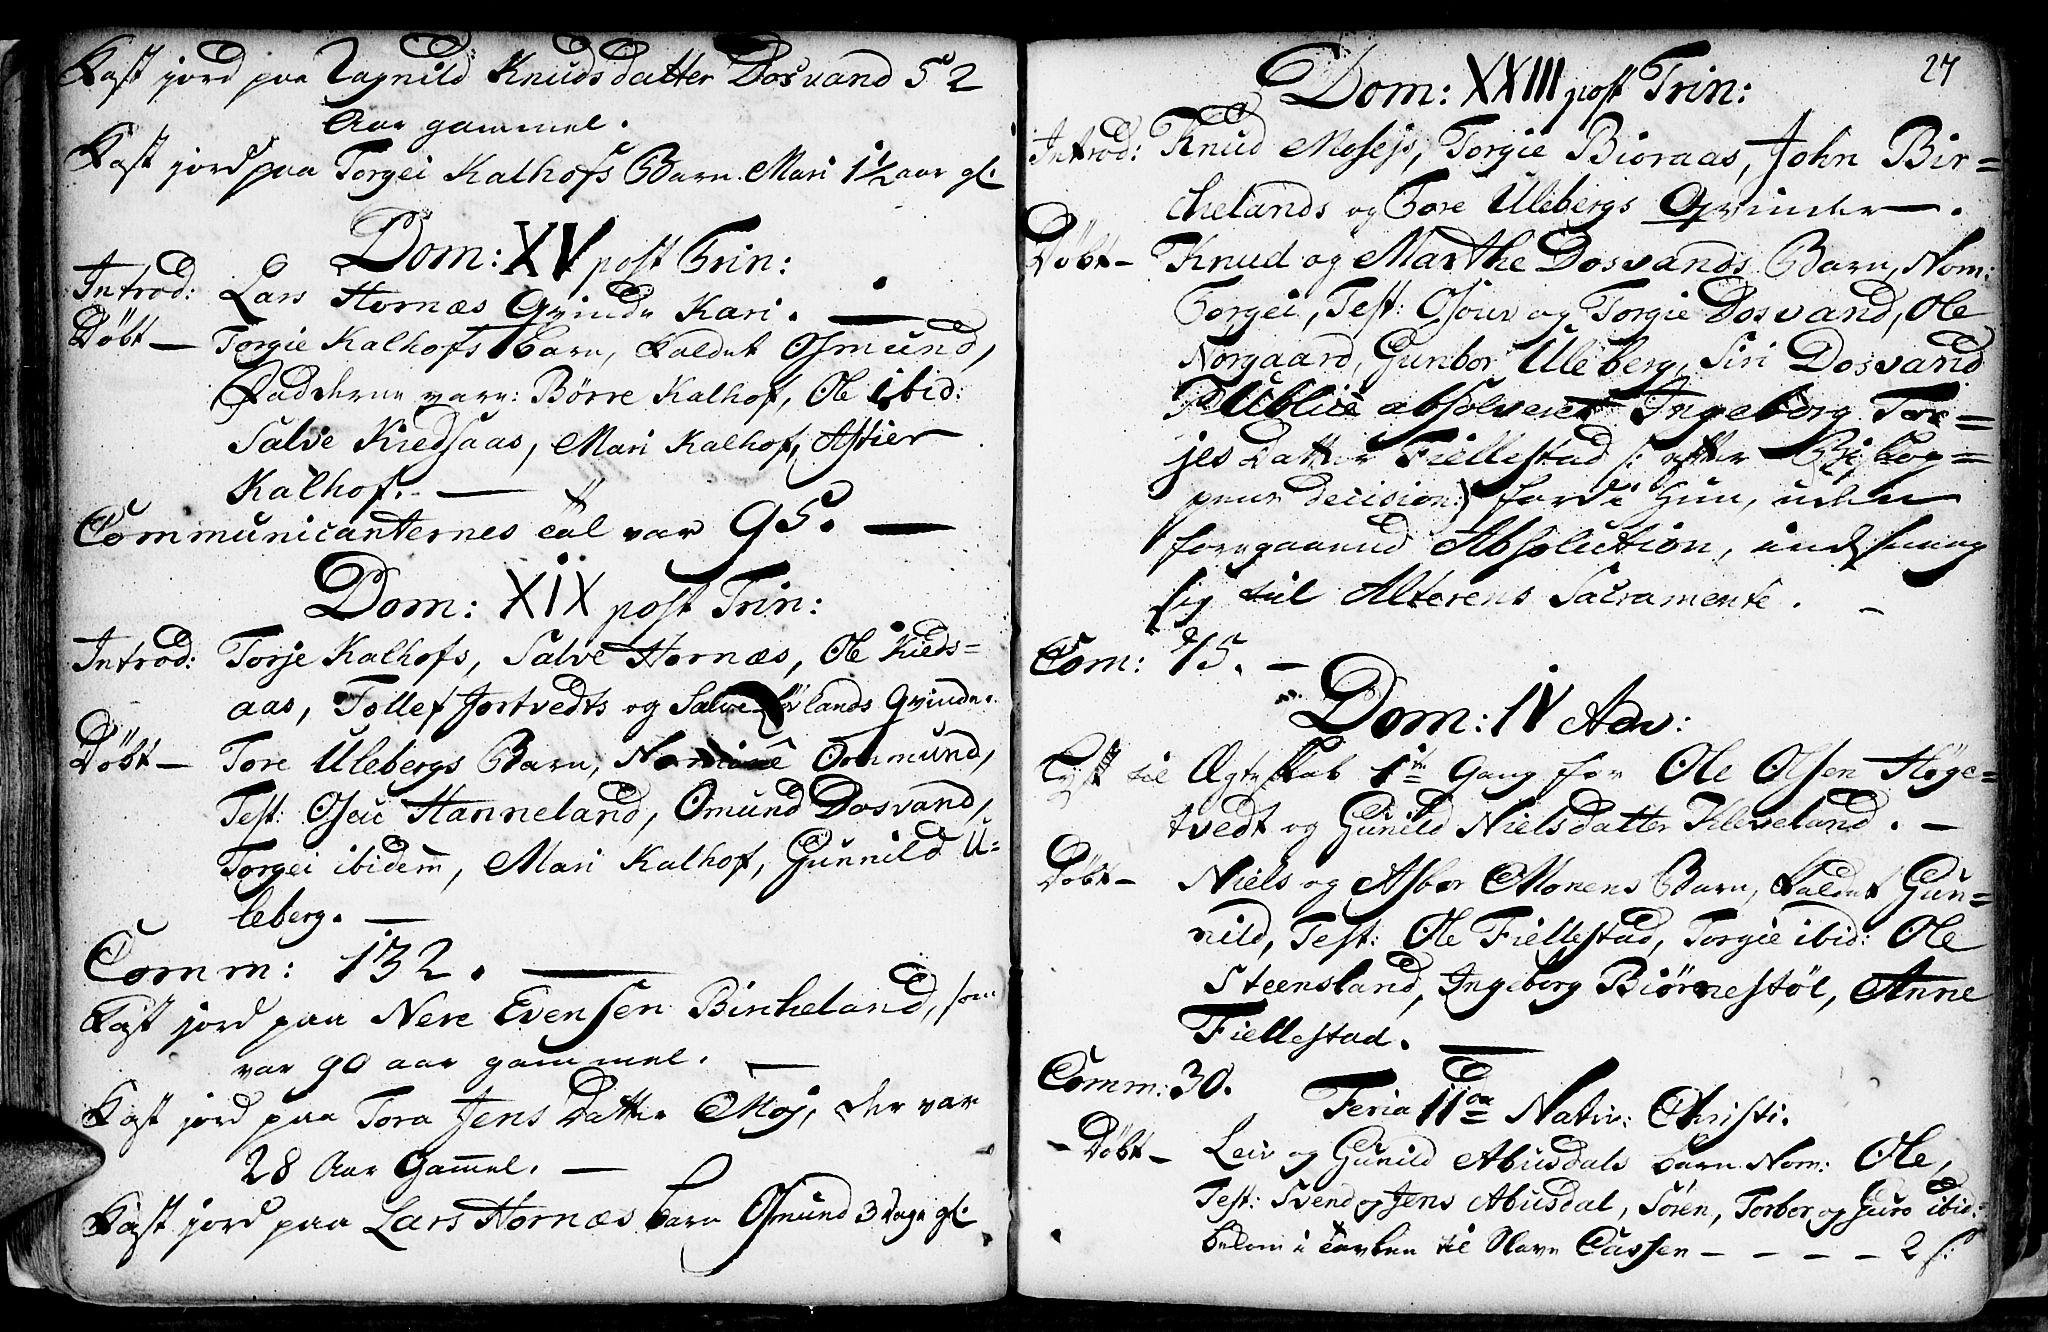 Kast jord paa Tagnild Knudsdatter Dosvand 52
Aar gammel.
Kast jord paa Torgei Kalhofs Barn Mari 1 1/2 aar gl:
Dom: XV post Trin:
Introd: Lars Hornæs Qvinde Kari. —
Döbt — Torgie Kalhofs barn, kaldet Osmund,
Fadderne vare: Börre Kalhof, Ole ibid:
Salve Kiedsaas, Mari Kalhof, Astier
Kalhof. —
Communicanternes tal var 95. —
Dom: XIX post Trin:
Introd: Torje Kalhofs, Salve Hornæs, Ole Kieds=
aas, Tollef Jortvedts og Salve lands Qvinder.
Döbt — Tore Ulebergs Barn, Nomine Ommund,
Test: Osuic Hanneland, Omund Dosvand,
Torgei ibidem, Mari Kalhof, Gunnild U=
leberg. —
Comm: 132. —
Kast jord paa Nere Evensen Bircheland, som
var 90 aar gammel. —
Kast jord paa Tora Jens Datter Moj, der var
28 Aar Gamel. —
Kast jord paa Lars Hornæs barn Osmund 3 dage gl:
27
Dom: XXIII post Trin:
Introd: Knud Mosejs, Torgie Bioraas, John Bir=
chelands og Tore Ulebergs Qvinder —.
Döbt — Knud og Marthe Dosvands Barn, Nom:
Torgei, Test: Osour og Torgie Dosvand, Ole
Norgaard, Gunbor Uleberg, Siri Dosvand
Publicè absolveret Ingeborg Tor=
jes Datter Fiellestad /: efter Biskop=
pens decision:/ fordi Hun, uden
foregaaend Absolution, indsneeg
sig til Alterens Sacramente. —
Com: 75. —
Dom: IV Adv:
Lyst til Ægteskab 1ste Gang for Ole Olsen Höge=
tvedt og Gunild Nielsdatter Kleveland. —
Döbt — Niels og Asbor Monens Barn, kaldet Gun=
nild, Test: Ole Fiellestad, Torgie ibid: Ole
Steensland, Ingeborg Biörnestöl, Anne
Fiellestad. —
Comm: 30.
Feria IIda Nativ: Christi.
Döbt — Leiv og Gunild Abusdals barn Nom: Ole,
Test: Svend og Jens Abusdal, Sören, Torbor og Guro ibid:
bekom i Tavlen til Slave Cassen — — — — 2 s: